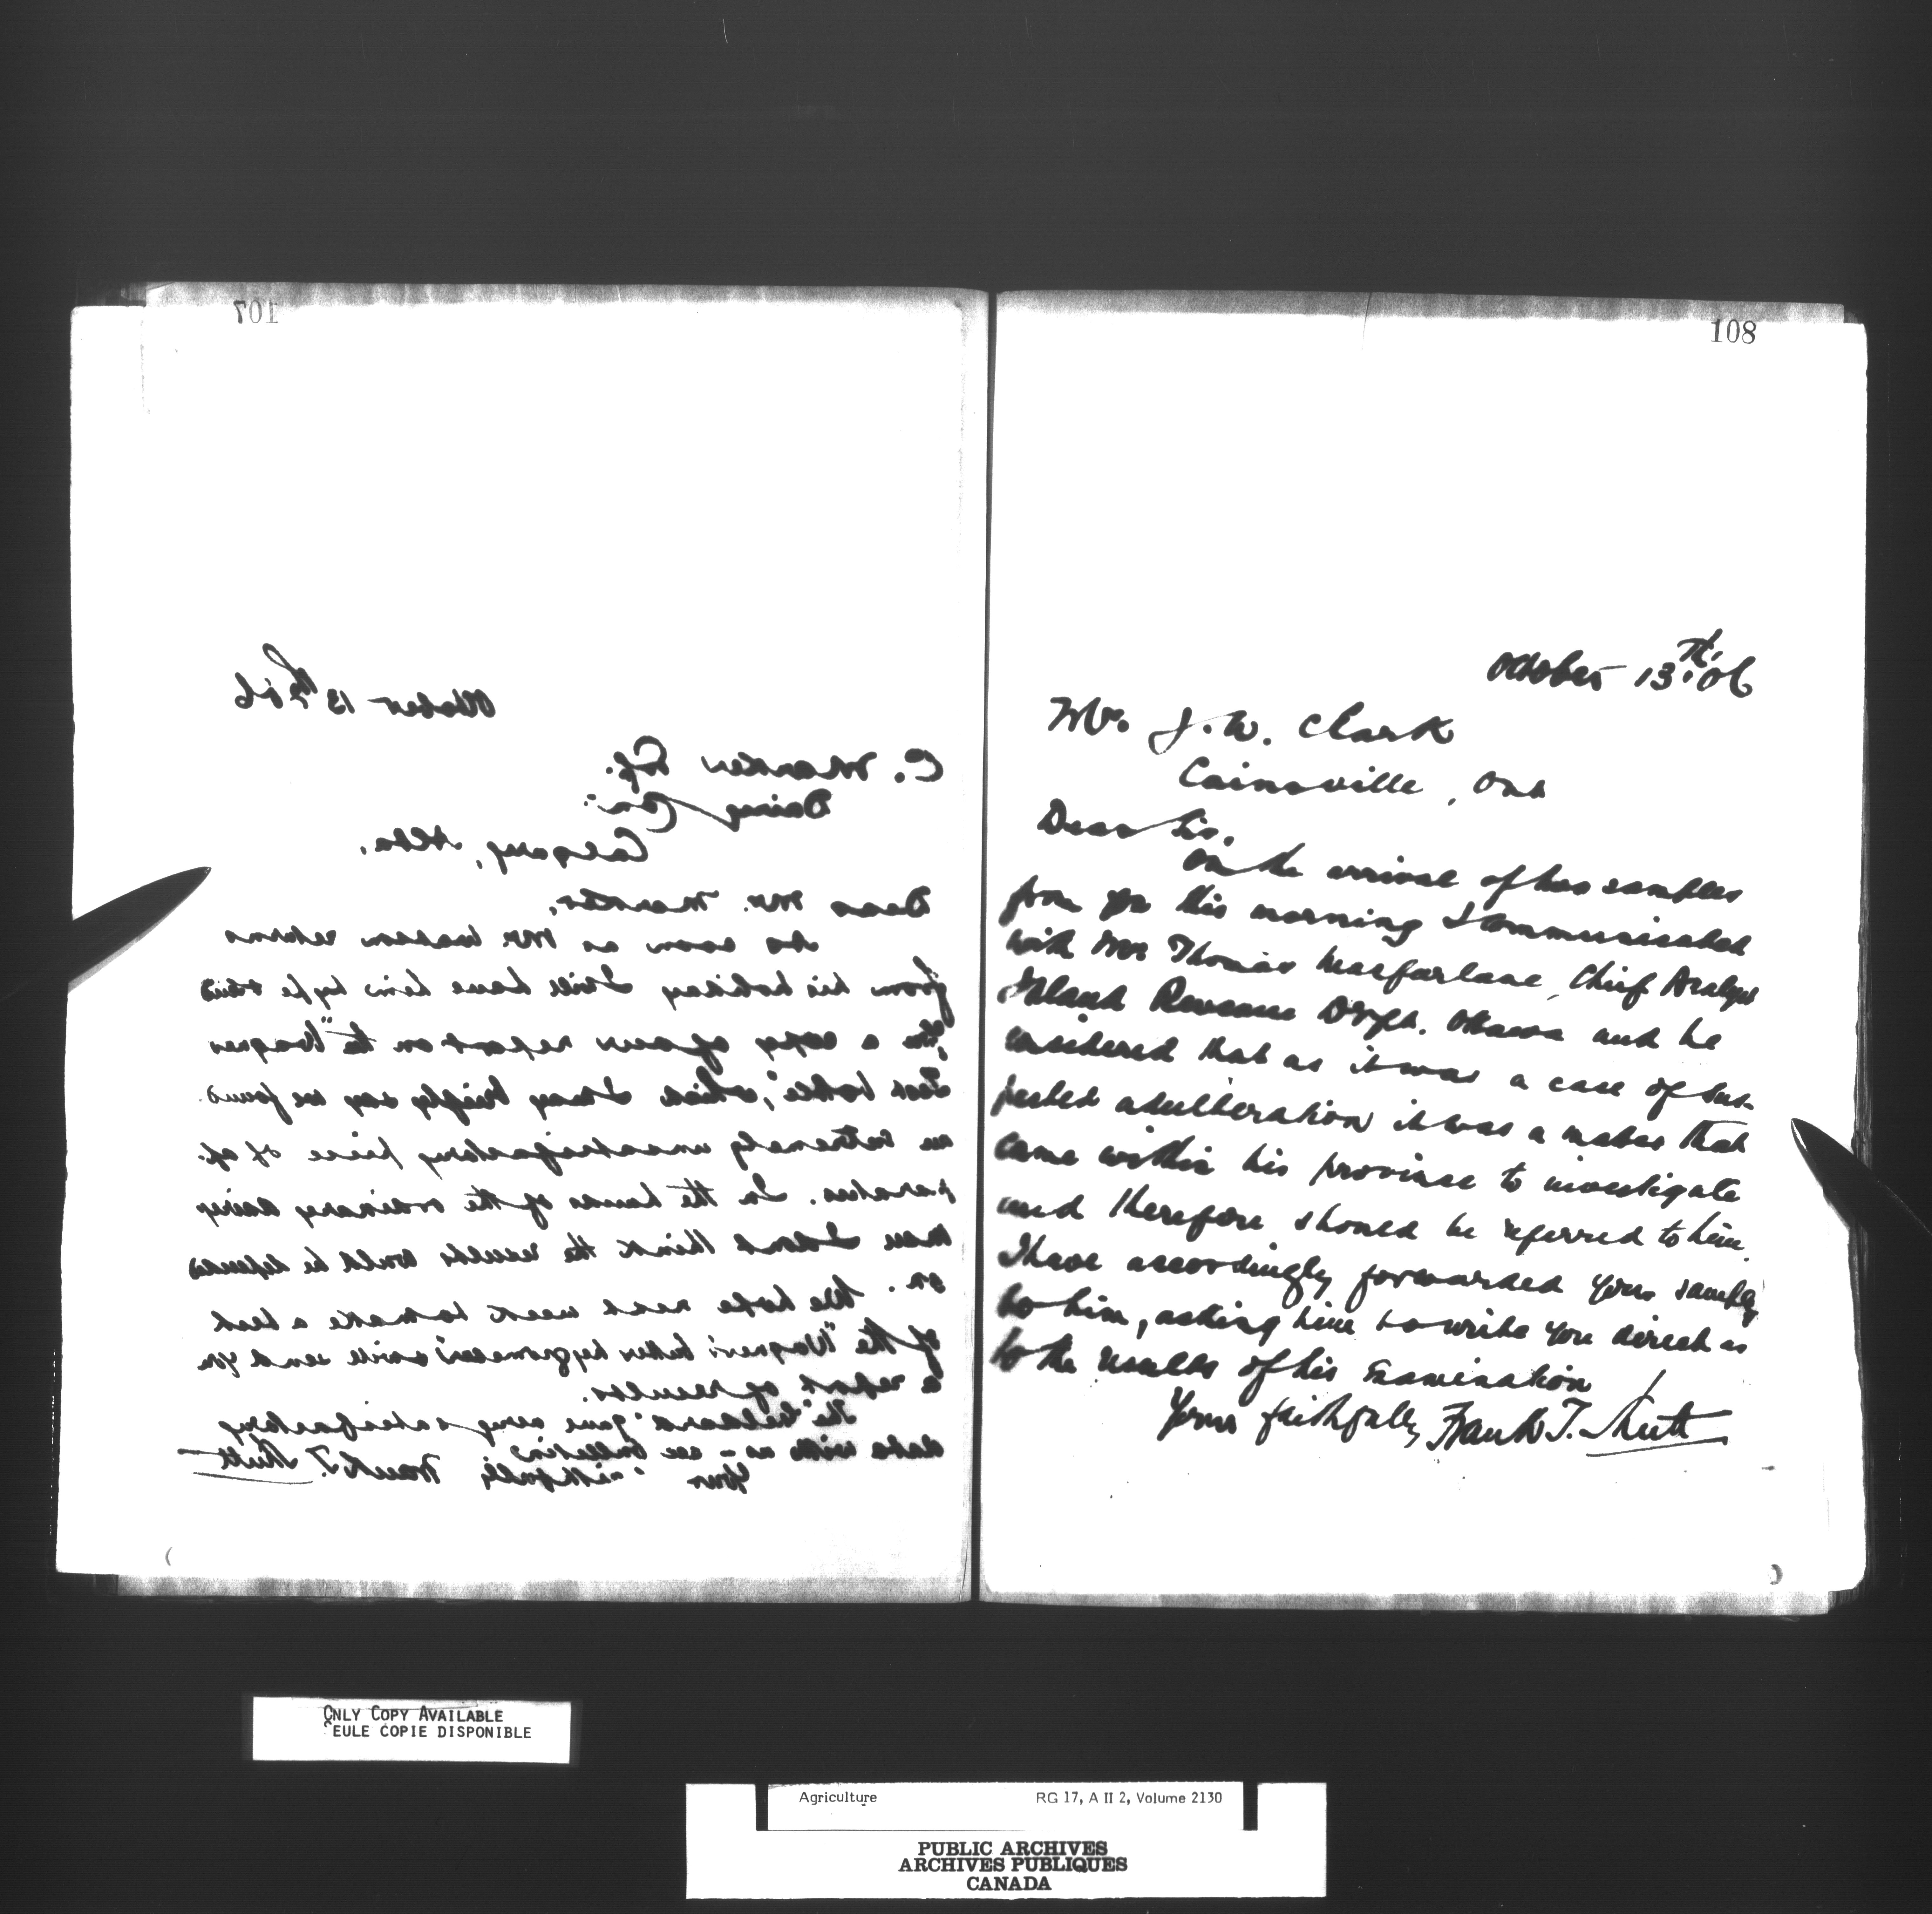 107
October 13th/06
C. Marker Esq.
Dairy Com:
Calgary, Alba.
Dear Mr. Marker,
As soon as Mr. returns
from his holiday I will have him type & send
you a copy of our report on the "Wagner
Test bottle", which I may briefly say we found
an extremely unsatisfactory piece of ap-
paratus. In the hands of the ordinary dairy
man I don't think the results could be depended
on. We hope next week to make a test
of the "Wagner's butter hygrometer" & will send you
a report of results.
The gave very satisfactory
data with us - see bulletin
Yours faithfully Frank T. Shutt
108
October 13th/06
Mr. J. W. Clark
Cainsville, Ont
Dear Sir,
On the arrival of two samples
from you this morning I communicated
with Mr Thomas Macfarlane, Chief Analyst
Inland Revenue Dept. Ottawa and he
considered that as it was a case of sus-
pected adulteration it was a matter that
came within his province to investigate
and therefore should be referred to him.
I have accordingly forwarded your samples
to him, asking him to write you direct as
to the results of his examination
Yours faithfully Frank T. Shutt
ONLY COPY AVAILABLE
EULE COPIE DISPONIBLE
Agriculture RG 17, A II 2, Volume 2130
PUBLIC ARCHIVES
ARCHIVES PUBLIQUES
CANADA